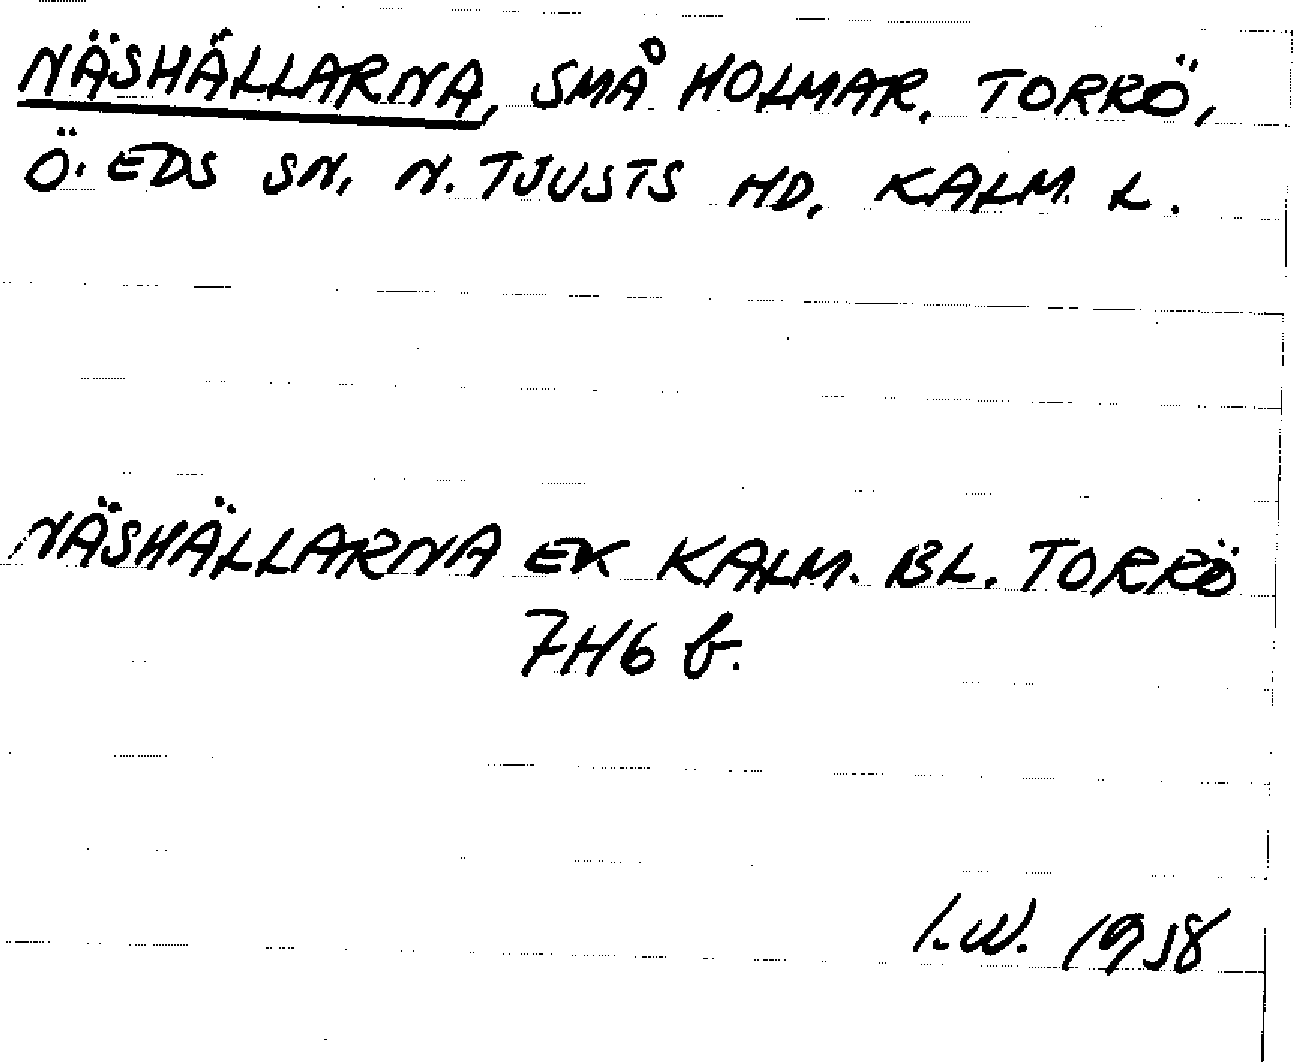 NÄSHÄLLARNA, SMÅ HOLMAR, TORRÖ,
Ö. EDS SN, N. TJUSTS HD, KALM. L.
NÄSHÄLLARNA EK KALM. BL. TORRÖ
7H6 b.
I.W. 1958